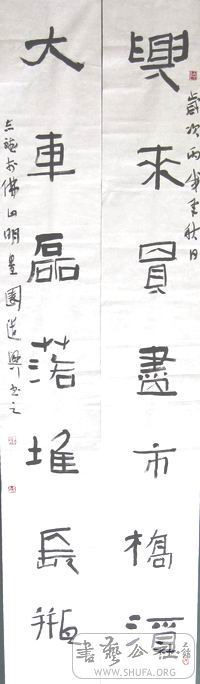 歲次丙戌年秋日
興來買盡市橋酒
大車磊落堆長瓶
於佛山明星園造興書之
書藝公社
WWW.SHUFA.ORG